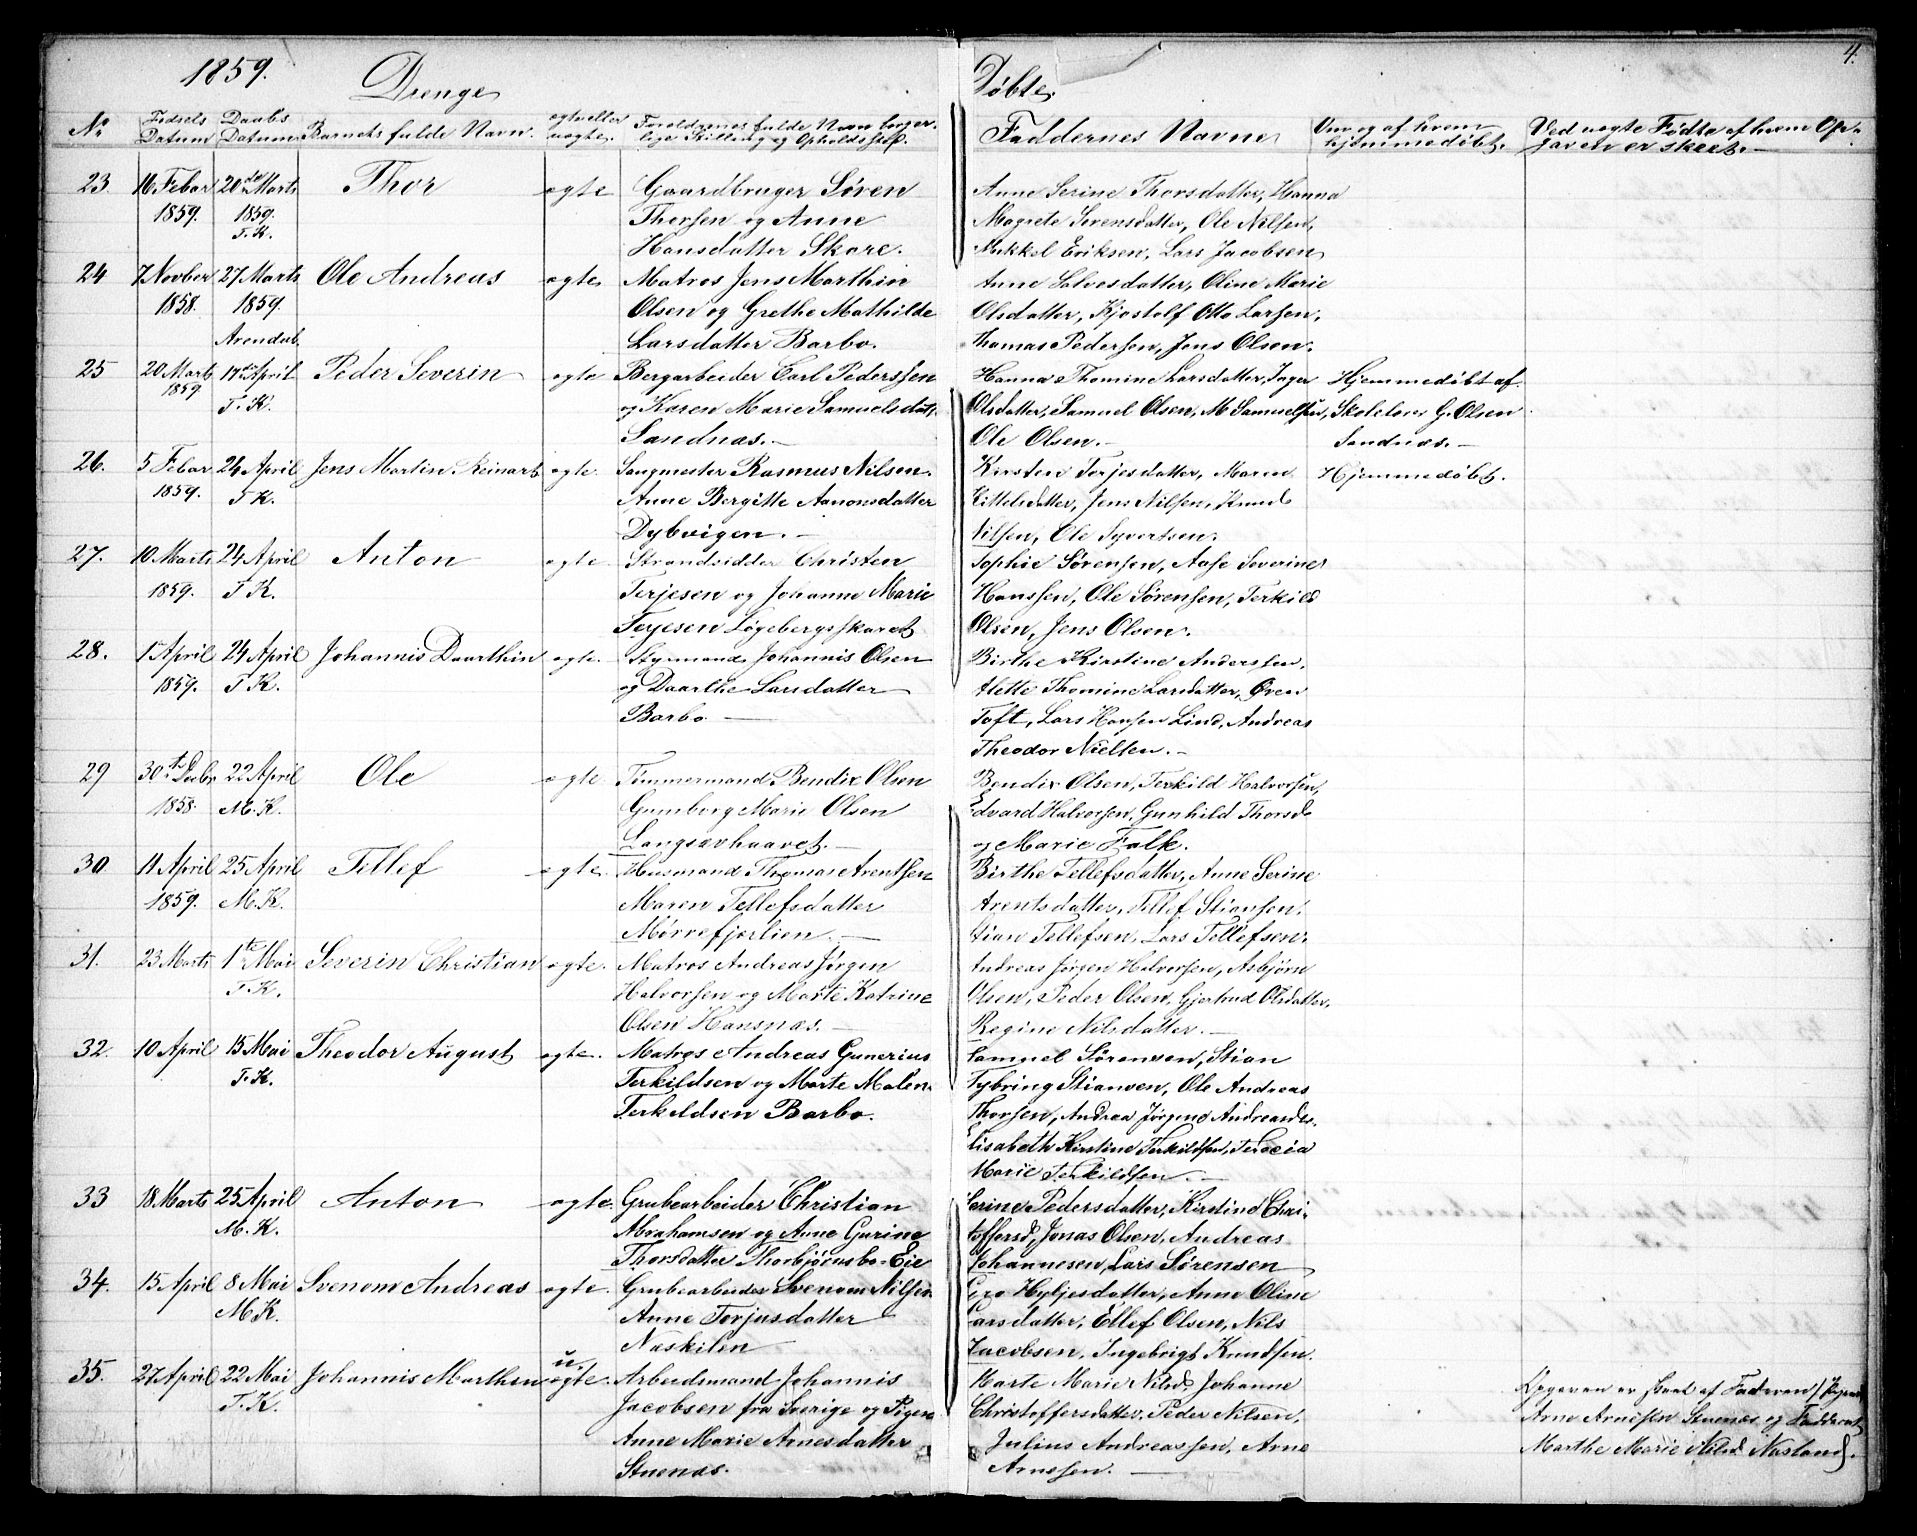 1859.
Drenge
Døbte
4.
No
Fødsels Datum
Daabs Datum
Barnets fulde Navn.
ægte eller uægte.
Forældrenes fulde Navn borgerlige Stilling og Opholdssted.
Faddernes Navne
Om og af hvem hjemmedøbt.
Ved uægte Fødte af hvem Opgaven er skeet.
23. 16 Febar 1859. 20de Marts 1859. T.K. Thor ægte
Gaardbruger Søren
Thorsen og Anne
Hansdatter Skare.
Anne Serine Thorsdatter, Hanna
Magrete Sørensdatter, Ole Nilsen,
Mikkel Eriksen, Lars Jacobsen
24 7 Novber 1858. 27 Marts 1859. Arendal. Ole Andreas ægte
Matros Jens Marthin
Olsen og Grethe Mathilde
Larsdatter Barbo.
Anne Salvesdatter, Oline Marie
Olsdatter, Kjøstolf Otto Larsen,
Thomas Pedersen, Jens Olsen.
25 20 Marts 1859 17de April T.K. Peder Severin ægte
Bergarbeider Carl Pederssen
og Karen Marie Samuelsdatt.
Sandnæs.
Hanna Thomine Larsdatter, Inger
Olsdatter, Samuel Olsen, M Samuelsen,
Ole Olsen.
Hjemmedøbt af
Skolelærer G. Olsen
Sandnæs.
26. 5 Febar 1859. 24 April T K. Jens Martin Reinart ægte.
Sangmester Rasmus Nilsen
Anne Bergitte Aanonsdatter
Dybvigen.
Kirsten Torjesdatter, Maren
Kittelsdatter, Jens Nilsen, Knud
Nilsen, Ole Syvertsen.
Hjemmedøbt.
27. 10 Marts 1859. 24 April T K. Anton ægte.
Strandsidder Christen
Terjesen og Johanne Marie
Terjesen Løgebergsskaret
Sophie Sørensen, Aase Severine
Hanssen, Ole Sørensen, Terkild
Olsen, Jens Olsen.
28. 1 April 1859. 24 April T K. Johannis Daarthin ægte.
Styrmand Johannis Olsen
og Daarthe Larsdatter
Barbo.
Birthe Kirstine Anderssen,
Alette Thomine Larsdatter, Øren
Toft, Lars Hansen Lind, Andreas
Theodor Nielsen.
29 30te Decbr 1858. 22 April M. K. Ole ægte
Tømmermand Bendix Olsen
Gunborg Marie Olsen
Langsævhaavet.
Bendix Olsen, Terkild Halvorsen,
Edvard Halvorsen, Gunhild Thorsd
og Marie Falk.
30 11 April 1859. 25 April M. K. Tellef ægte.
Husmand Thomas Arentsen
Maren Tellefsdatter
Mørrefjærlien.
Birthe Tellefsdatter, Anne Serine
Arentsdatter, Tellef Stiansen,
Stian Tellefsen, Lars Tellefsen.
31. 23 Marts 1te Mai T.K. Severin Christian ægte.
Matros Andreas Jørgen
Halvorsen og Marte Katrine
Olsen Hansnæs.
Andreas Jørgen Halvorsen, Asbjørn
Olsen, Peder Olsen, Gjertrud Olsdatter,
Regine Nilsdatter.
32. 10 April 15 Mai T.K. Theodor August ægte.
Matros Andreas Gunerius
Terkildsen og Marte Malen
Terkeldsen Barbo.
Samuel Sørensen, Stian
Tybring Stiansen, Ole Andreas
Thorsen, Andrea Jørgine Andreasdt.
Elisabeth Kirstine Terkildsen, Terecia
Marie Terkildsen.
33 18 Marts 25 April M. K. Anton ægte.
Grubearbeider Christian
Abrahamsen og Anne Gurine
Thorsdatter Thorbjørnsbo Eie
Serine Pedersdatter, Kirstine Chri-
stoffersd, Jonas Olsen, Andreas
Johannesen, Lars Sørensen
34. 15 April 8 Mai M K. Svenom Andreas ægte.
Grubearbeider Svenom Nilsen
Anne Torjusdatter
Næskilen
Giro Hyljesdatter, Anne Oline
Larsdatter, Ellef Olsen, Nils
Jacobsen, Ingebrigt Knudsen.
35. 27 April 22 Mai T.K. Johannis Marthin u.ægte.
Arbeidsmand Johannis
Jacobsen fra Sverige og Pigen
Anne Marie Arnesdatter
Stuenæs.
Marte Marie Nilsd, Johanne
Christoffersdatter, Peder Nilsen,
Julius Andreassen, Arne
Arnesen.
Opgaven er skeet af Faderen
Arne Arnesen Stuenæs og Fadderen
Marthe Marie Nilsd Næsland.